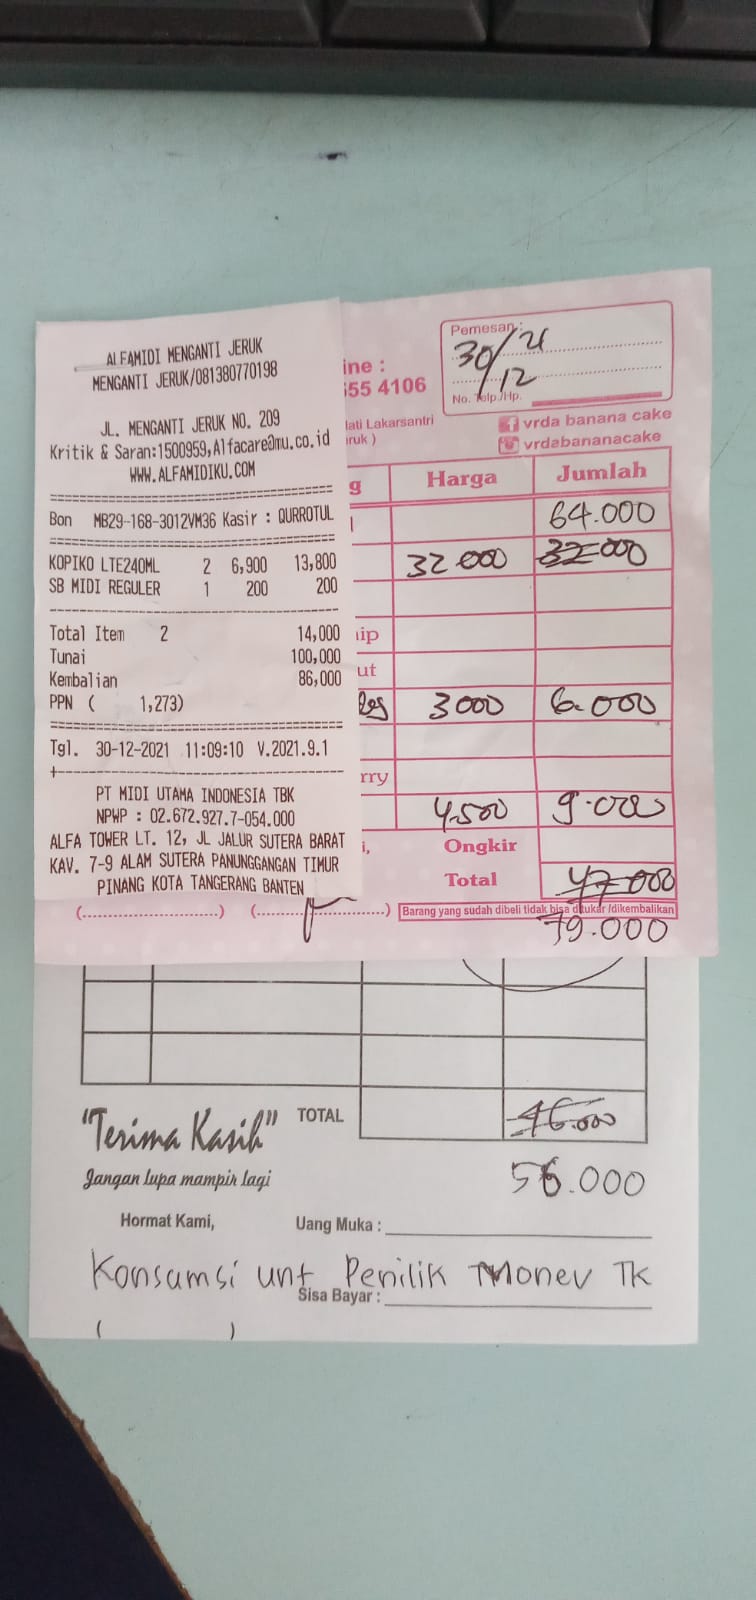 ALFAMIDI MENGANTI JERUK
MENGANTI JERUK/081380770198
JL. MENGANTI JERUK NO. 209
Kritik & Saran:1500959,Alfacare@mu.co.id
WWW.ALFAMIDIKU.COM
Bon MB29-168-3012VM36 Kasir : QURROTUL
KOPIKO LTE240ML 2 6,900 13,800
SB MIDI REGULER 1 200 200
Total Item 2 14,000
Tunai 100,000
Kembalian 86,000
PPN ( 1,273)
Tgl. 30-12-2021 11:09:10 V.2021.9.1
PT MIDI UTAMA INDONESIA TBK
NPWP : 02.672.927.7-054.000
ALFA TOWER LT. 12, JL JALUR SUTERA BARAT
KAV. 7-9 ALAM SUTERA PANUNGGANGAN TIMUR
PINANG KOTA TANGERANG BANTEN
Pemesan :
30/12 21
No. Telp./Hp.
ine :
555 4106
lati Lakarsantri
ruk )
vrda banana cake
vrdabananacake
g Harga Jumlah
64.000
32.000 32.000
ip
ut
3000 6.000
rry
4.500 9.000
Ongkir
Total 47.000
(........................) (........................) Barang yang sudah dibeli tidak bisa ditukar /dikembalikan
79.000
"Terima Kasih" TOTAL 46.000
Jangan lupa mampir lagi
56.000
Hormat Kami, Uang Muka :
Konsumsi unt Penilik Monev TK
Sisa Bayar :
( )